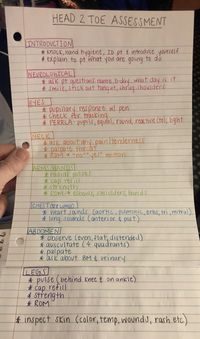 HEAD 2 TOE ASSESSMENT
INTRODUCTION
* knock, hand hygiene, ID pt & introduce yourself
* explain to pt what you are going to do
NEUROLOGICAL
* ask pt questions: name, b-day, what day is it
* smile, stick out tongue, shrug shoulders
EYES
* pupillary response w/ pen
* check for tracking
* PERRLA - pupils, equal, round, reactive, light
NECK
* ask about any pain/tenderness
* palpate throat
* ROM - "no" "yes" motion
ARMS/HANDS
* radial pulses
* cap refill
* strength
* ROM - elbows, shoulders, hands
CHEST
* heart sounds (aortic, pulmonic, erbs, tri, mitral)
* lung sounds (anterior & post)
ABDOMEN
* observe (even, flat, distended)
* auscultate (4 quadrants)
* palpate
* ask about BM & urinary
LEGS
* pulse (behind knee & on ankle)
* cap refill
* strength
* ROM
* inspect skin (color, temp, wounds, rash etc)